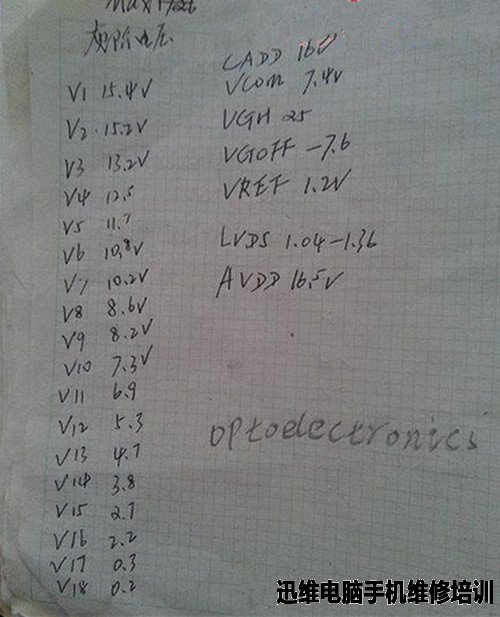 灰阶电压
V1 15.4V
V2 15.2V
V3 13.2V
V4 12.5
V5 11.7
V6 10.8V
V7 10.2V
V8 8.6V
V9 8.2V
V10 7.3V
V11 6.9
V12 5.3
V13 4.7
V14 3.8
V15 2.7
V16 2.2
V17 0.3
V18 0.2
CADD 16V
VCOM 7.4V
VGH 25
VGOFF -7.6
VREF 1.2V
LVDS 1.04-1.36
AVDD 16.5V
Optoelectronics
迅维电脑手机维修培训